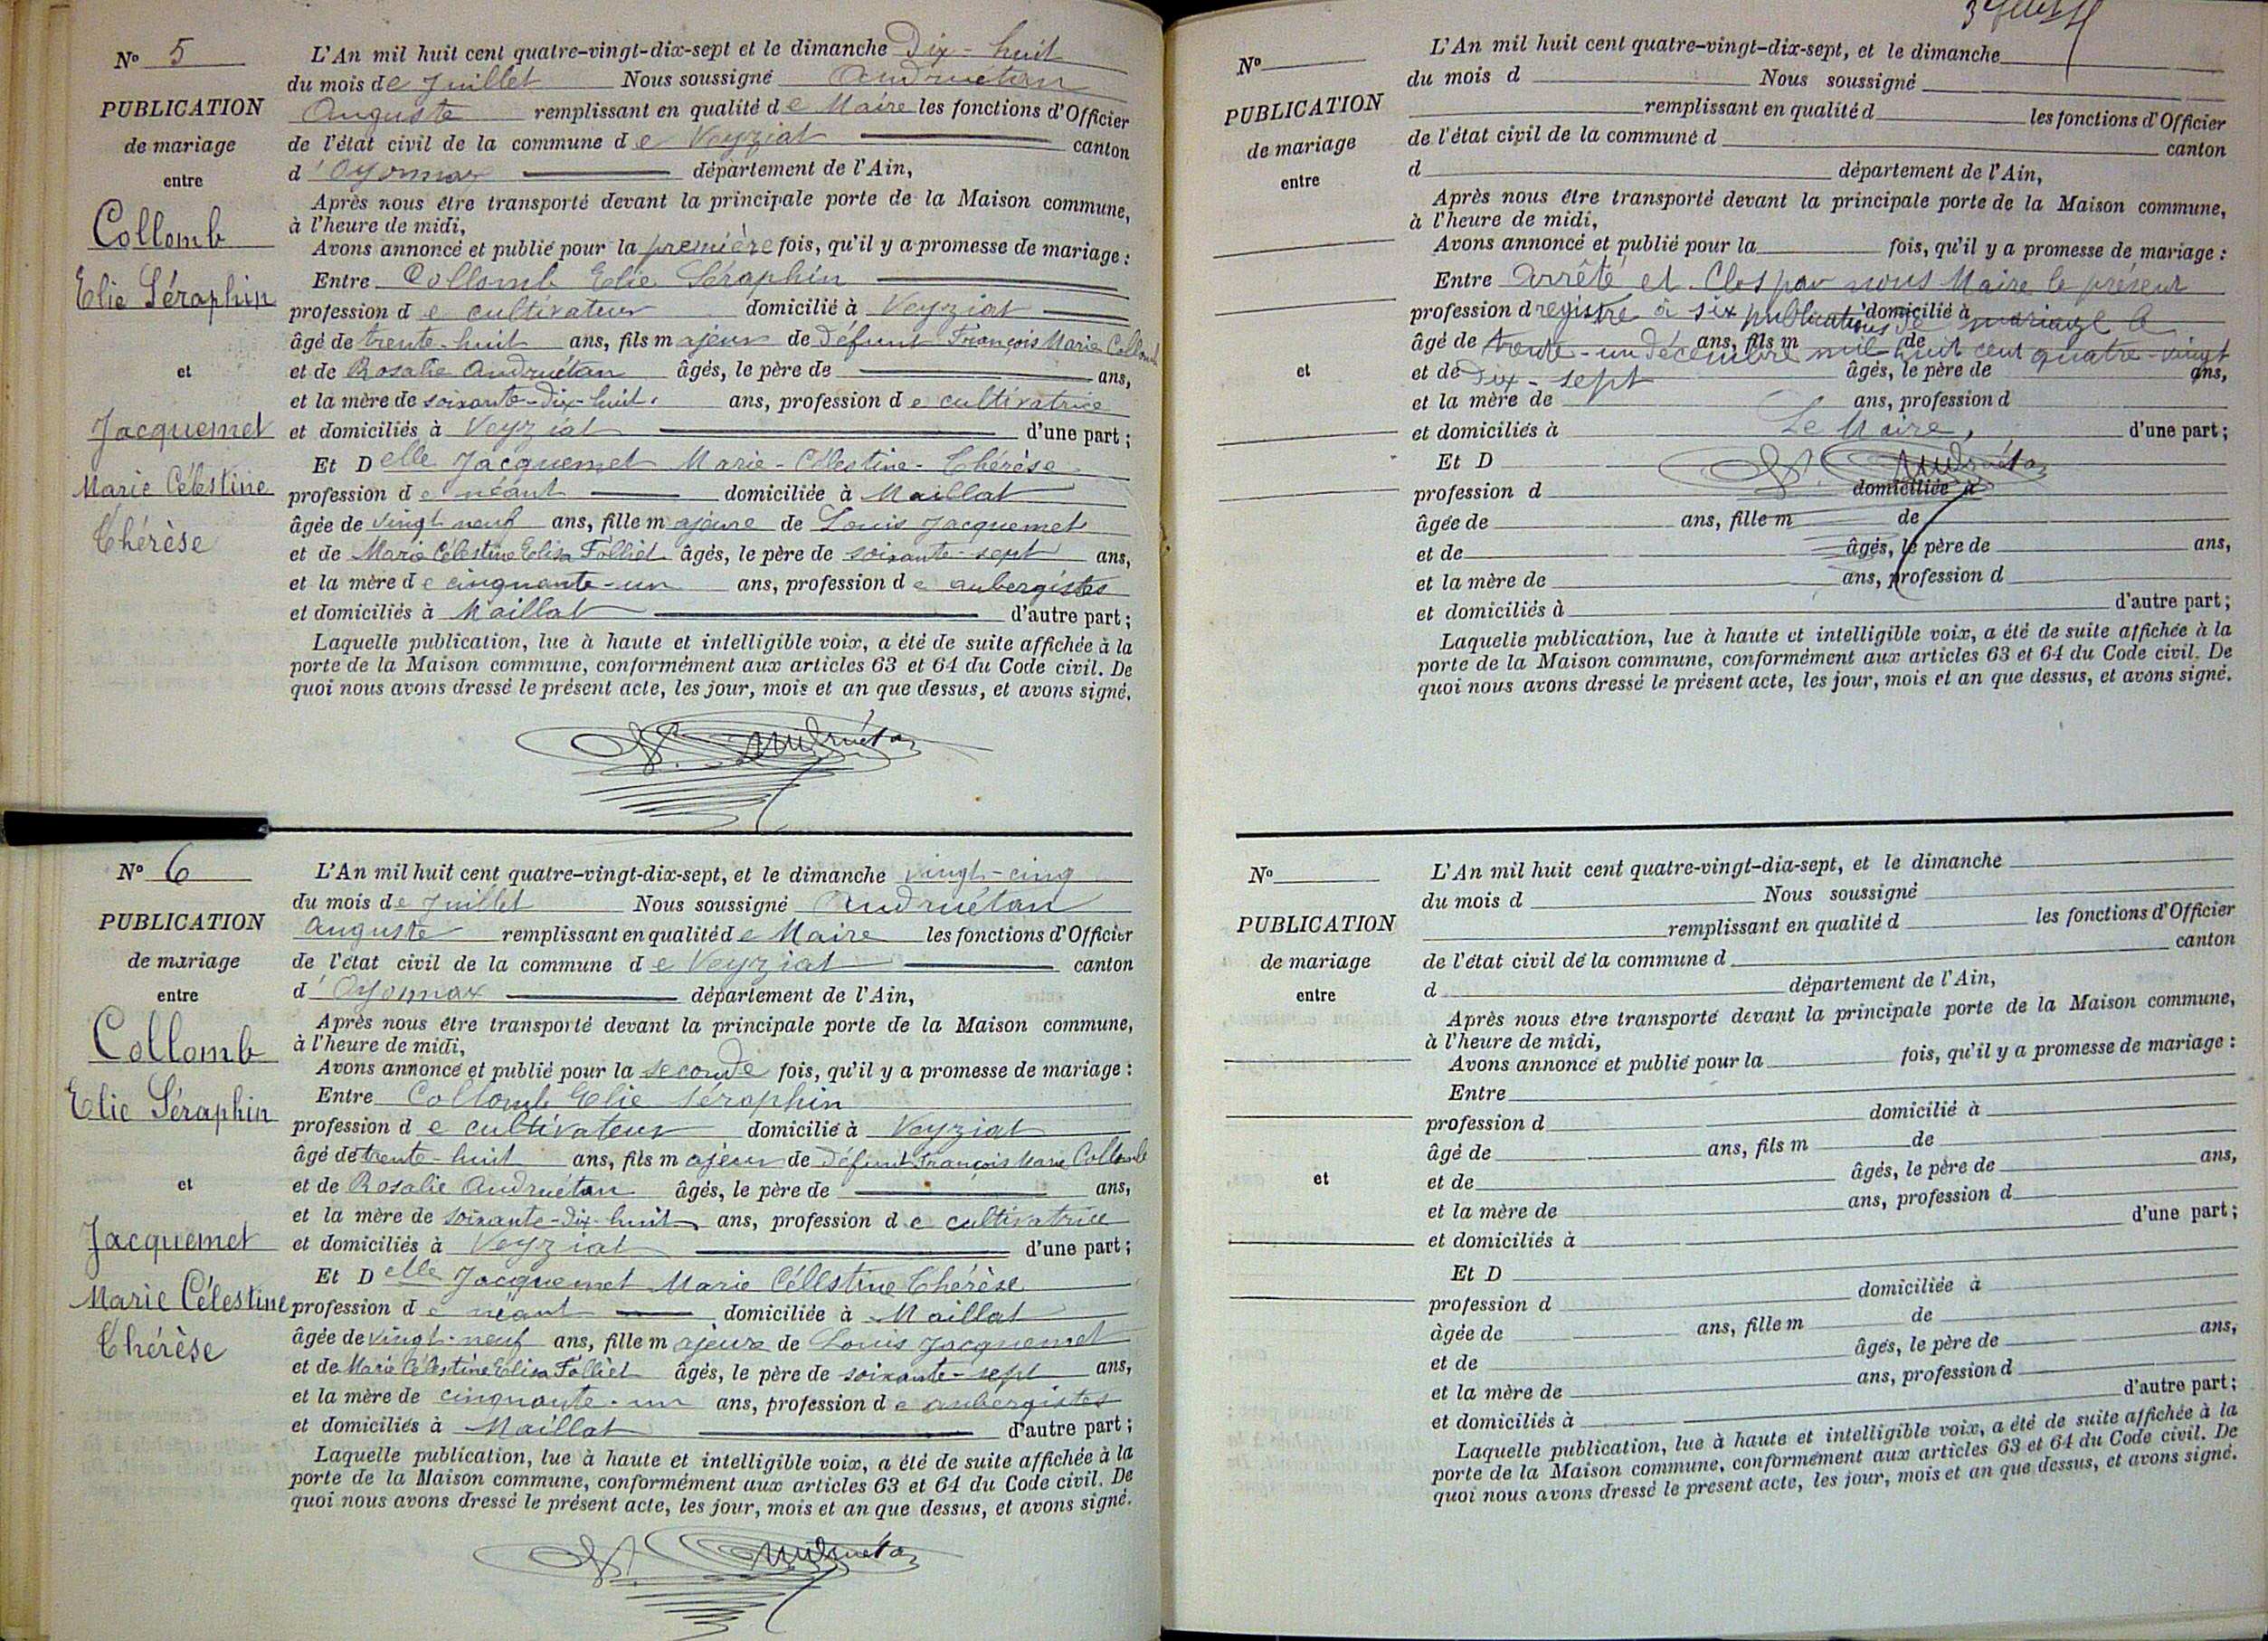 N° 5
PUBLICATION
de mariage
entre
Collomb
Elie Séraphin
et
Jacquemet
Marie Célestine
Thérèse
L'An mil huit cent quatre-vingt-dix-sept et le dimanche Dix-huit
du mois de Juillet Nous soussigné Andruétan
Auguste remplissant en qualité de Maire les fonctions d'Officier
de l'état civil de la commune de Veyziat canton
d'Oyonnax département de l'Ain,
Après nous être transporté devant la principale porte de la Maison commune,
à l'heure de midi,
Avons annoncé et publié pour la première fois, qu'il y a promesse de mariage :
Entre Collomb Elie Séraphin
profession de cultivateur domicilié à Veyziat
âgé de trente-huit ans, fils majeur de Défunt François Marie Collomb
et de Rosalie Andruétan âgés, le père de ans,
et la mère de soixante-dix-huit ans, profession de cultivatrice
et domiciliés à Veyziat d'une part ;
Et Delle Jacquemet Marie-Célestine-Thérèse
profession de néant domiciliée à Maillat
âgée de vingt neuf ans, fille majeure de Louis Jacquemet
et de Marie Célestine Elisa Folliet âgés, le père de soixante-sept ans,
et la mère de cinquante-un ans, profession de aubergistes
et domiciliés à Maillat d'autre part ;
Laquelle publication, lue à haute et intelligible voix, a été de suite affichée à la
porte de la Maison commune, conformément aux articles 63 et 64 du Code civil. De
quoi nous avons dressé le présent acte, les jour, mois et an que dessus, et avons signé.
Andruétan
N° 6
PUBLICATION
de mariage
entre
Collomb
Elie Séraphin
et
Jacquemet
Marie Célestine
Thérèse
L'An mil huit cent quatre-vingt-dix-sept, et le dimanche vingt-cinq
du mois de Juillet Nous soussigné Andruétan
Auguste remplissant en qualité de Maire les fonctions d'Officier
de l'état civil de la commune de Veyziat canton
d'Oyonnax département de l'Ain,
Après nous être transporté devant la principale porte de la Maison commune,
à l'heure de midi,
Avons annoncé et publié pour la seconde fois, qu'il y a promesse de mariage :
Entre Collomb Elie Séraphin
profession de cultivateur domicilié à Veyziat
âgé de trente-huit ans, fils majeur de Défunt François Marie Collomb
et de Rosalie Andruétan âgés, le père de ans,
et la mère de soixante-dix-huit ans, profession de cultivatrice
et domiciliés à Veyziat d'une part ;
Et Delle Jacquemet Marie Célestine Thérèse
profession de néant domiciliée à Maillat
âgée de vingt-neuf ans, fille majeure de Louis Jacquemet
et de Marie Célestine Elisa Folliet âgés, le père de soixante-sept ans,
et la mère de cinquante-un ans, profession de aubergistes
et domiciliés à Maillat d'autre part ;
Laquelle publication, lue à haute et intelligible voix, a été de suite affichée à la
porte de la Maison commune, conformément aux articles 63 et 64 du Code civil. De
quoi nous avons dressé le présent acte, les jour, mois et an que dessus, et avons signé.
Andruétan
N°
PUBLICATION
de mariage
entre
et
L'An mil huit cent quatre-vingt-dix-sept, et le dimanche
du mois d Nous soussigné
remplissant en qualité d les fonctions d'Officier
de l'état civil de la commune d canton
d département de l'Ain,
Après nous être transporté devant la principale porte de la Maison commune,
à l'heure de midi,
Avons annoncé et publié pour la fois, qu'il y a promesse de mariage :
Entre Arrêté et Clos par nous Maire le présent
profession d registre à six publications de domicilié à mariage le
âgé de trente-un décembre ans, fils m mil huit cent de quatre-vingt
et de Dix-sept âgés, le père de ans,
et la mère de ans, profession d
et domiciliés à Le Maire, d'une part ;
Et D Andruétan
profession d domiciliée à
âgée de ans, fille m de
et de âgés, le père de ans,
et la mère de ans, profession d
et domiciliés à d'autre part ;
Laquelle publication, lue à haute et intelligible voix, a été de suite affichée à la
porte de la Maison commune, conformément aux articles 63 et 64 du Code civil. De
quoi nous avons dressé le présent acte, les jour, mois et an que dessus, et avons signé.
N°
PUBLICATION
de mariage
entre
et
L'An mil huit cent quatre-vingt-dia-sept, et le dimanche
du mois d Nous soussigné
remplissant en qualité d les fonctions d'Officier
de l'état civil de la commune d canton
d département de l'Ain,
Après nous être transporté devant la principale porte de la Maison commune,
à l'heure de midi,
Avons annoncé et publié pour la fois, qu'il y a promesse de mariage :
Entre
profession d domicilié à
âgé de ans, fils m de
et de âgés, le père de ans,
et la mère de ans, profession d
et domiciliés à d'une part ;
Et D
profession d domiciliée à
âgée de ans, fille m de
et de âgés, le père de ans,
et la mère de ans, profession d
et domiciliés à d'autre part ;
Laquelle publication, lue à haute et intelligible voix, a été de suite affichée à la
porte de la Maison commune, conformément aux articles 63 et 64 du Code civil. De
quoi nous avons dressé le présent acte, les jour, mois et an que dessus, et avons signé.